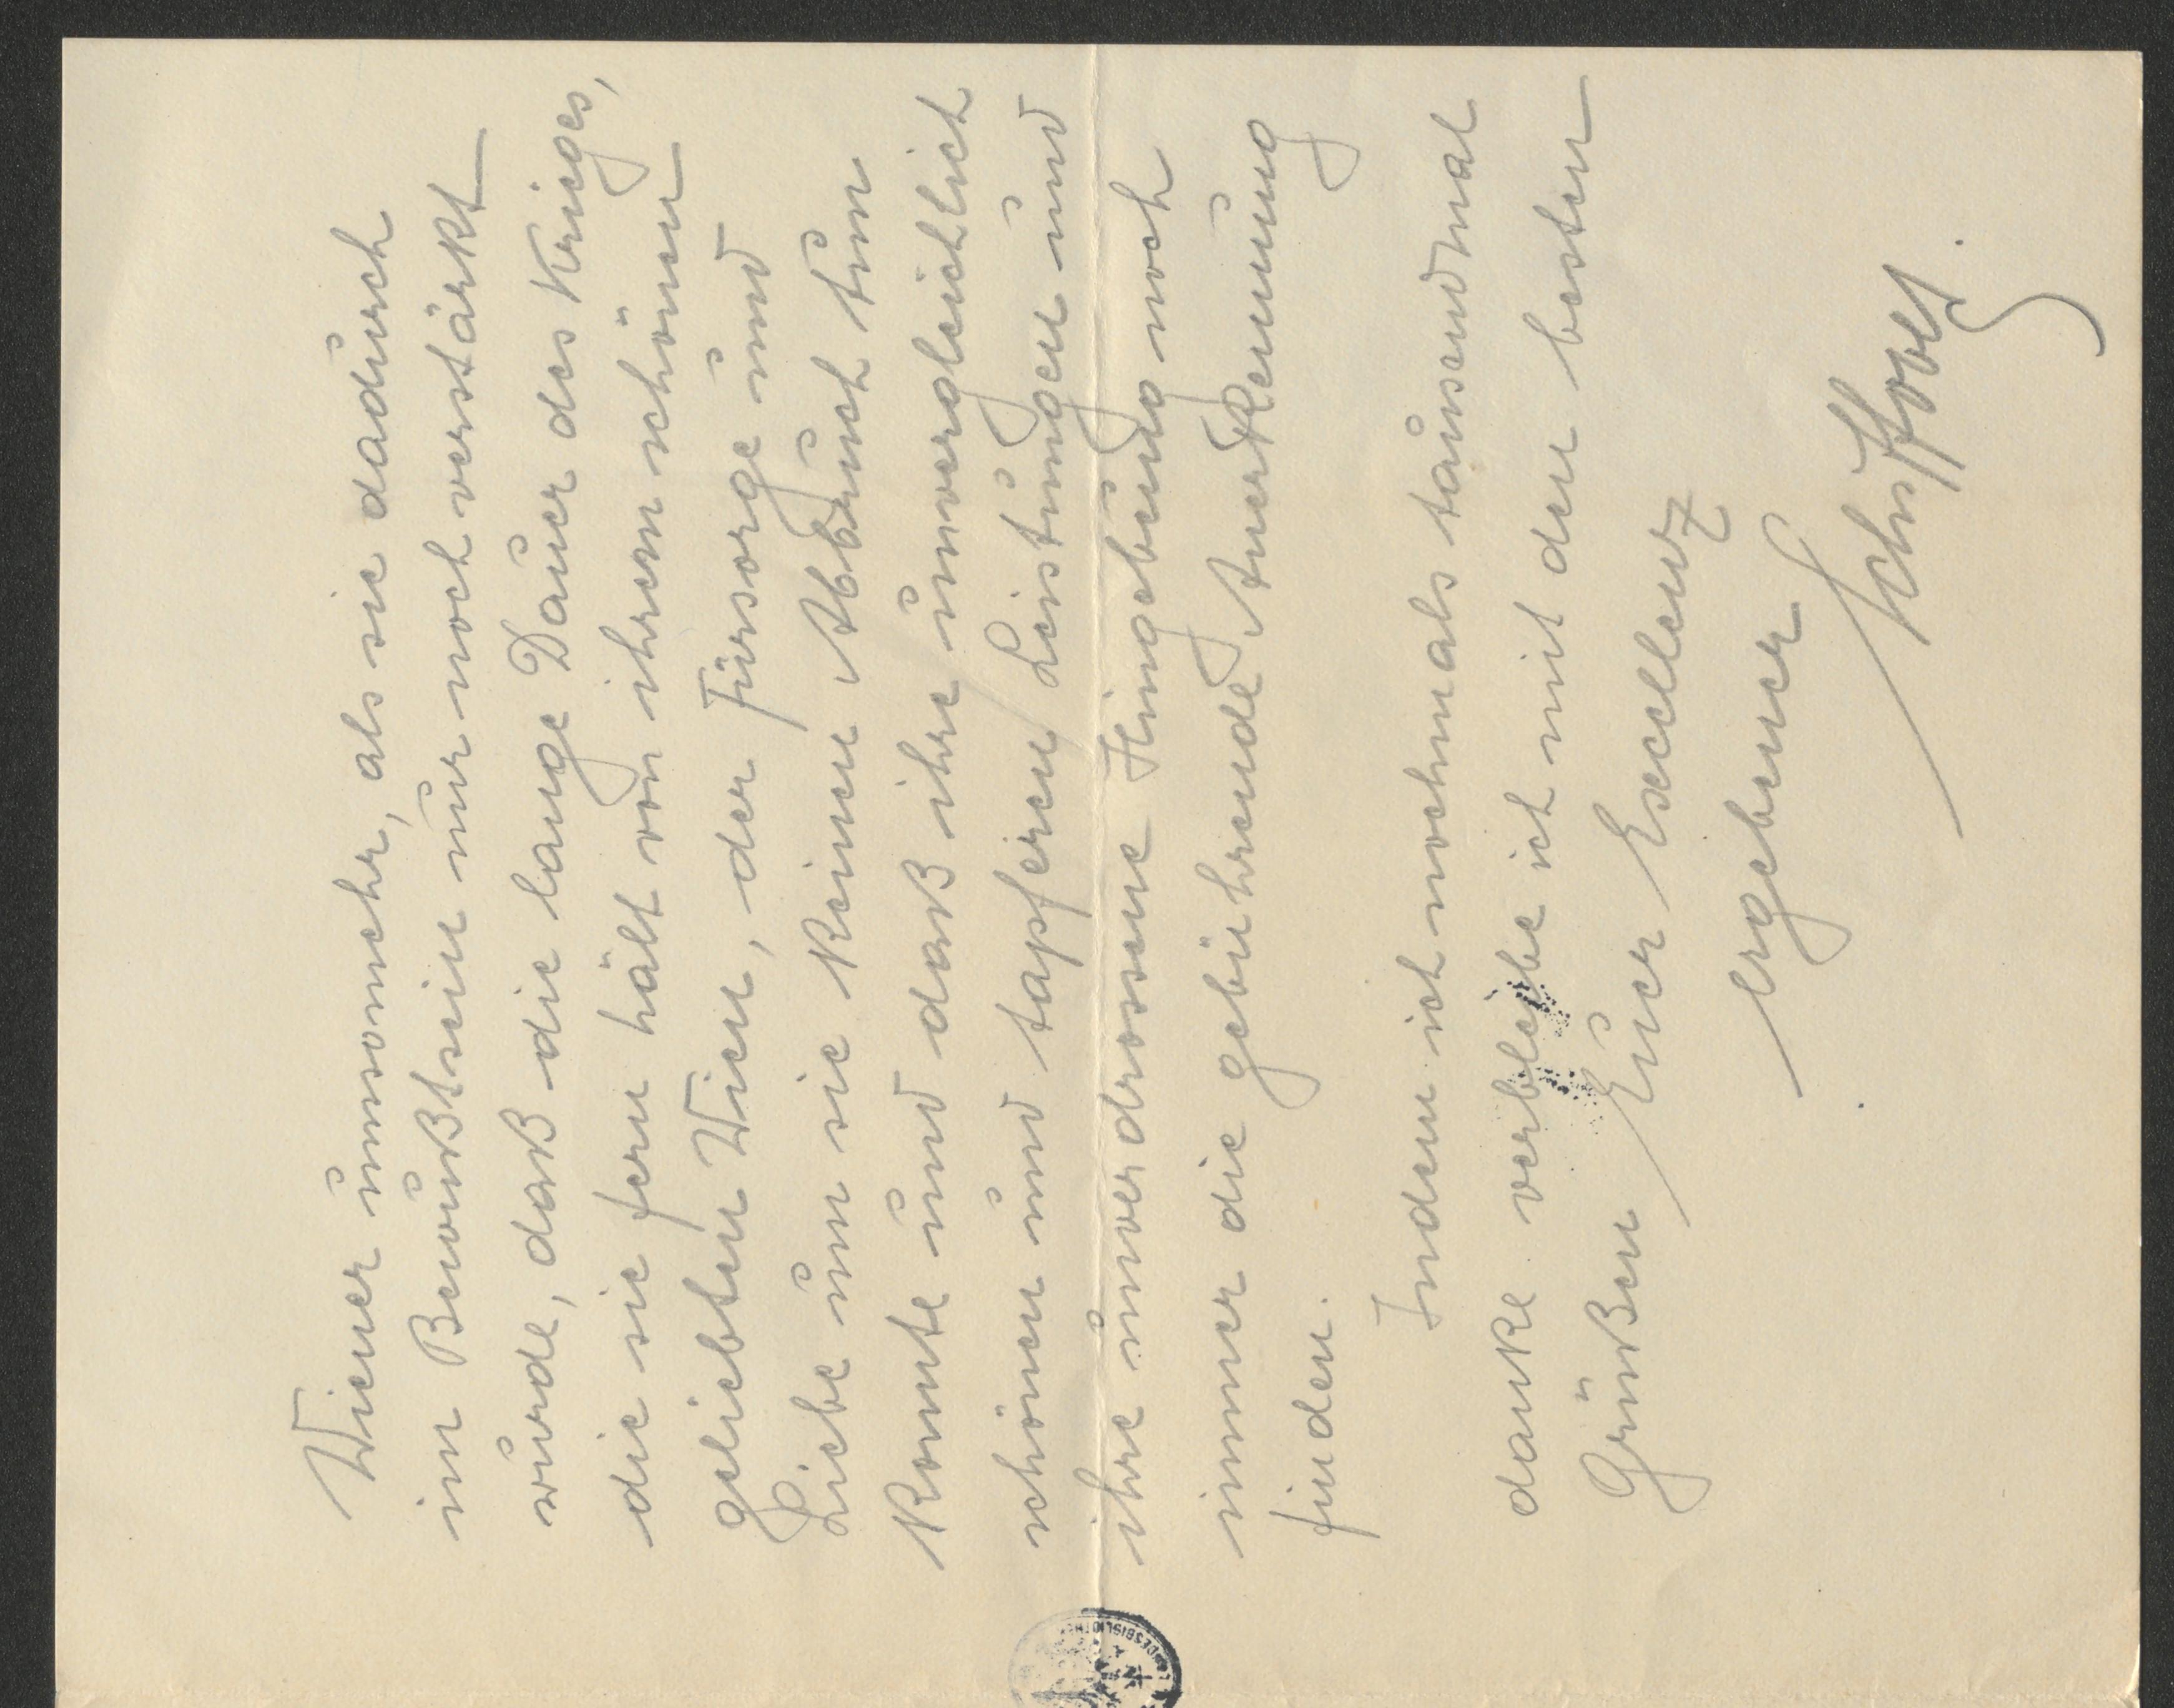 Wiener umsomehr, als sie dadurch
im Bewußtsein nur noch verstärkt
wurde, daß die lange Dauer des Krieges,
die sie fern hält von ihrem schönen
geliebten Wien, der Fürsorge und
Liebe um sie keinen Abbruch tun
konnte und daß ihre unvergleichlich
schönen und tapferen Leistungen und
ihre unverdrossene Hingebung noch
immer die gebührende Anerkennung
finden.
Indem ich nochmals tausendmal
danke verbleibe ich mit den besten
Grüßen Euer Exzellenz
ergebener
LANDESBIBLIOTHEK